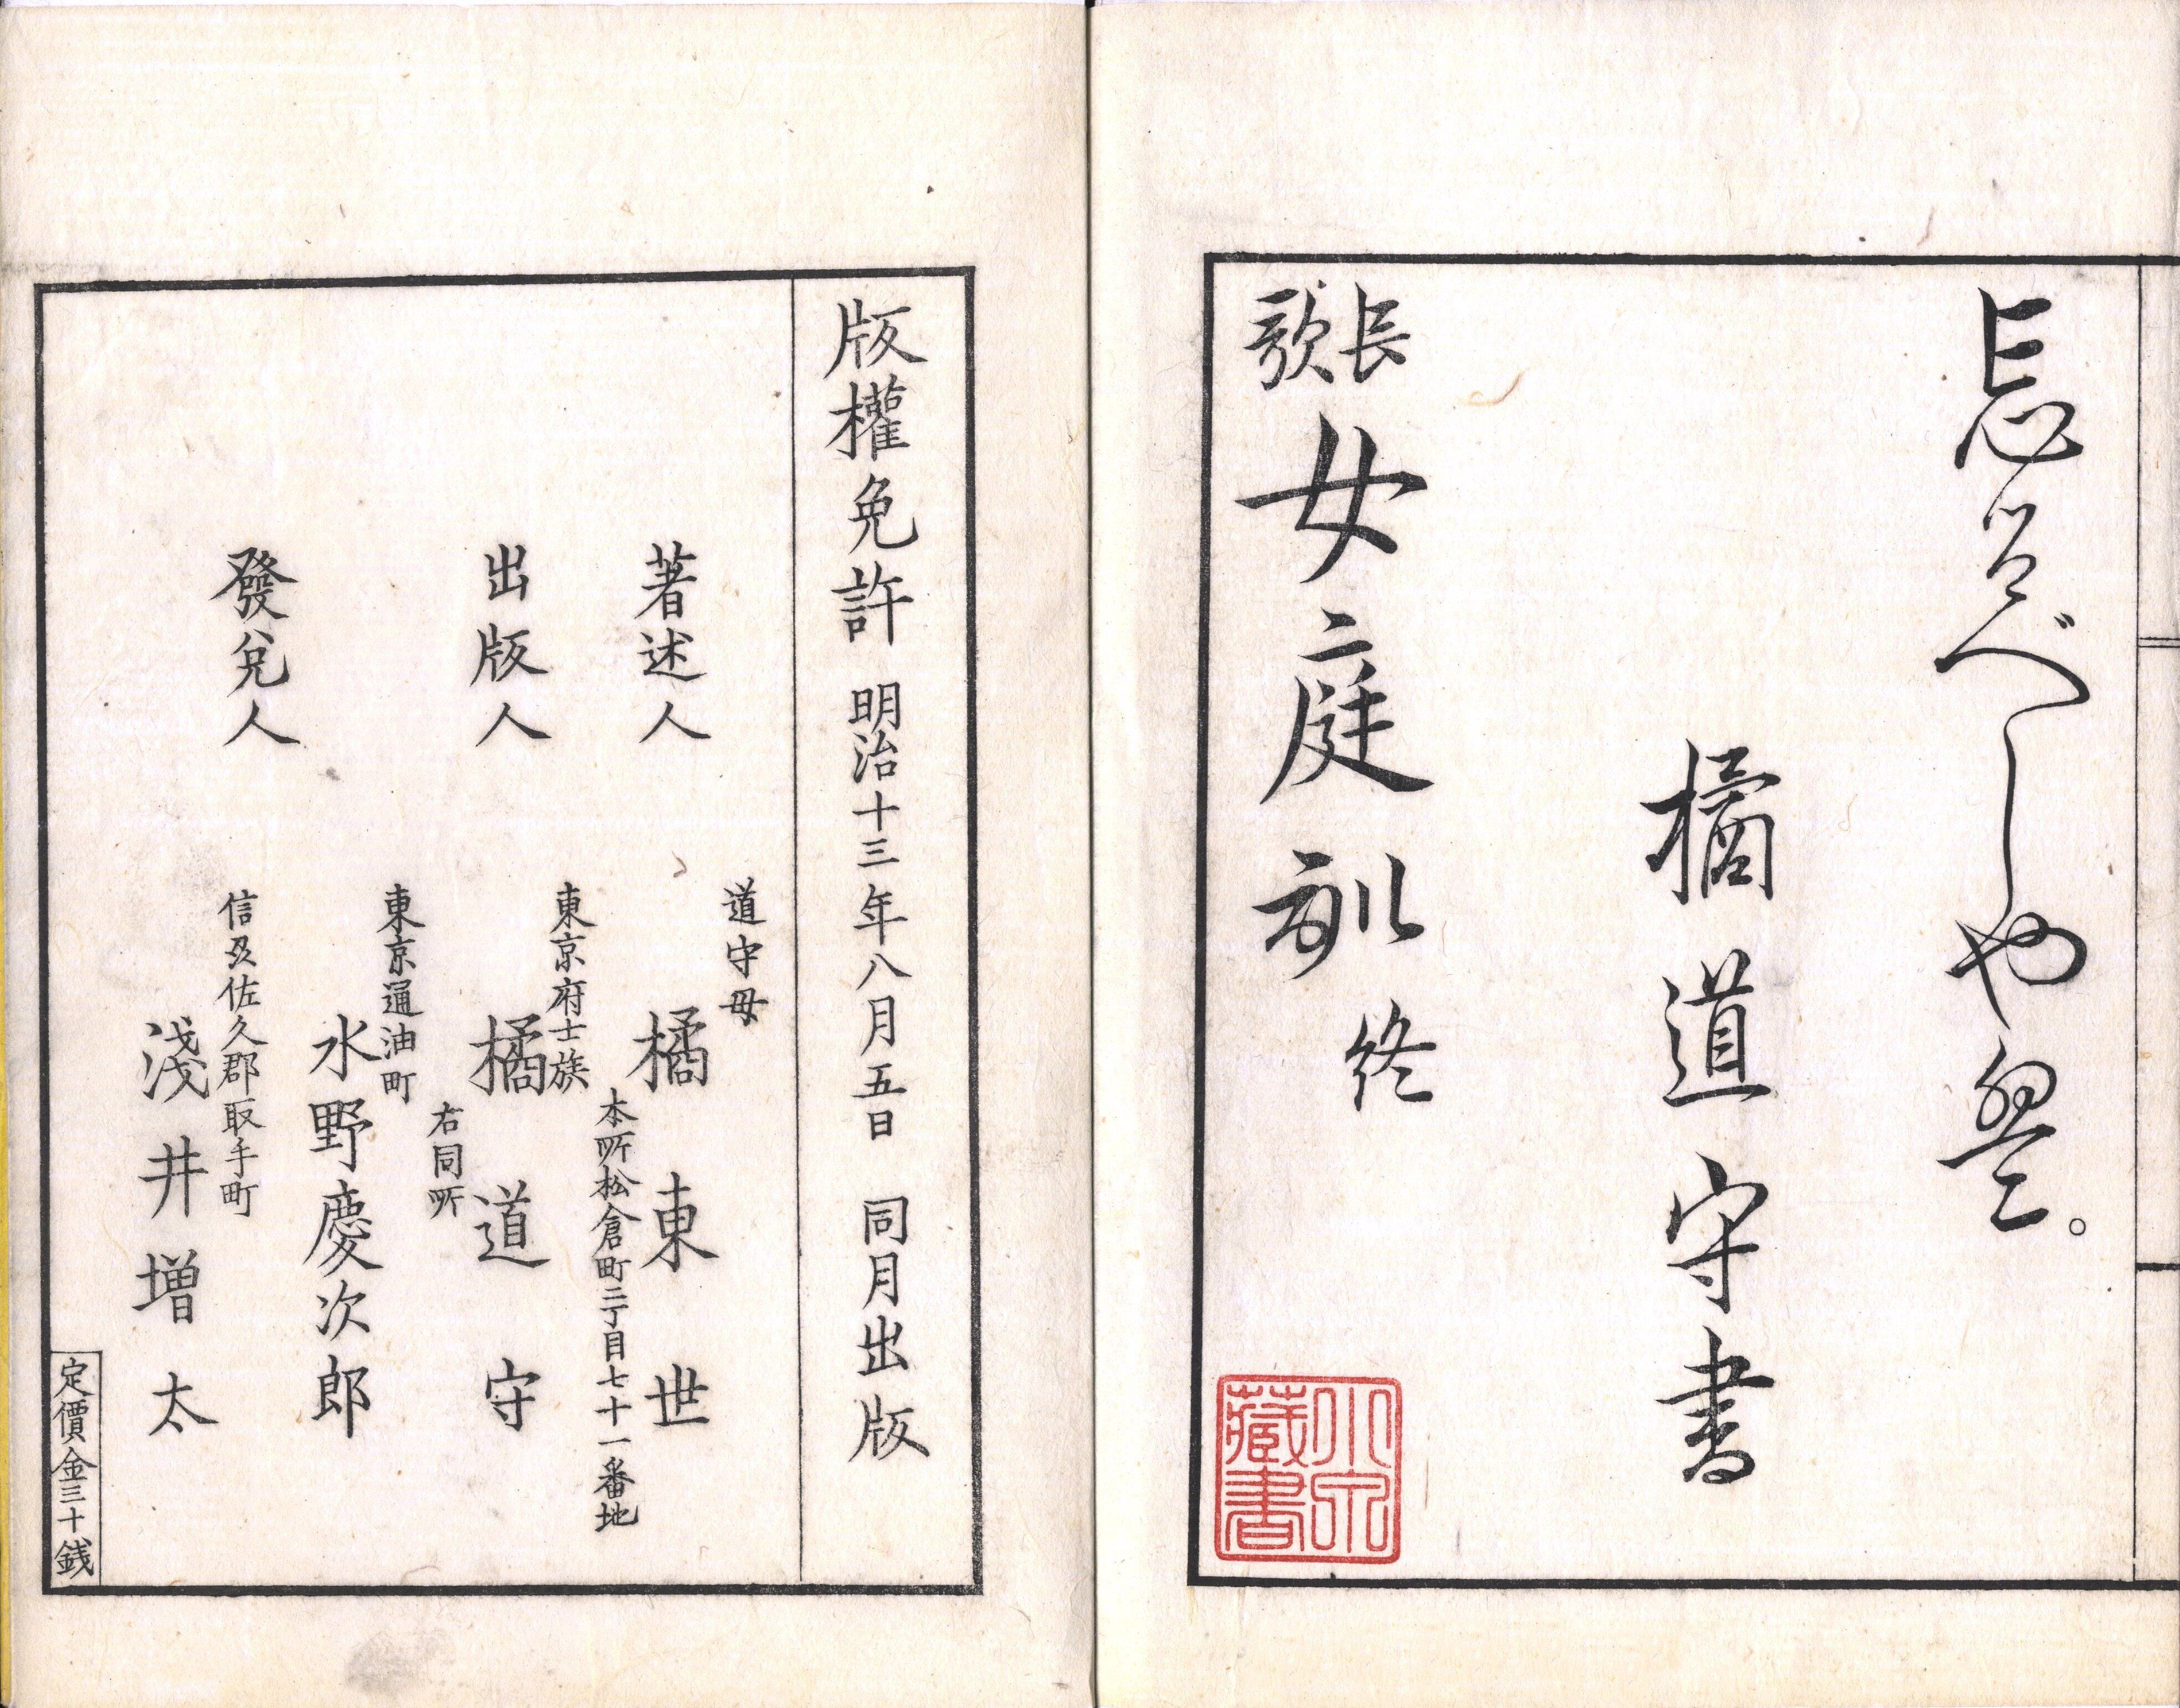 忘るべしや盤。
橘道守書
長歌 女庭訓 終
小泉藏書
版權免許 明治十三年八月五日 同月出版
道守母
著述人 橘東世
本所松倉町二丁目七十一番地
東京府士族
出版人 橘道守
右同所
東京通油町
水野慶次郎
發兌人
信刕佐久郡取手町
淺井増太
定價金三十銭